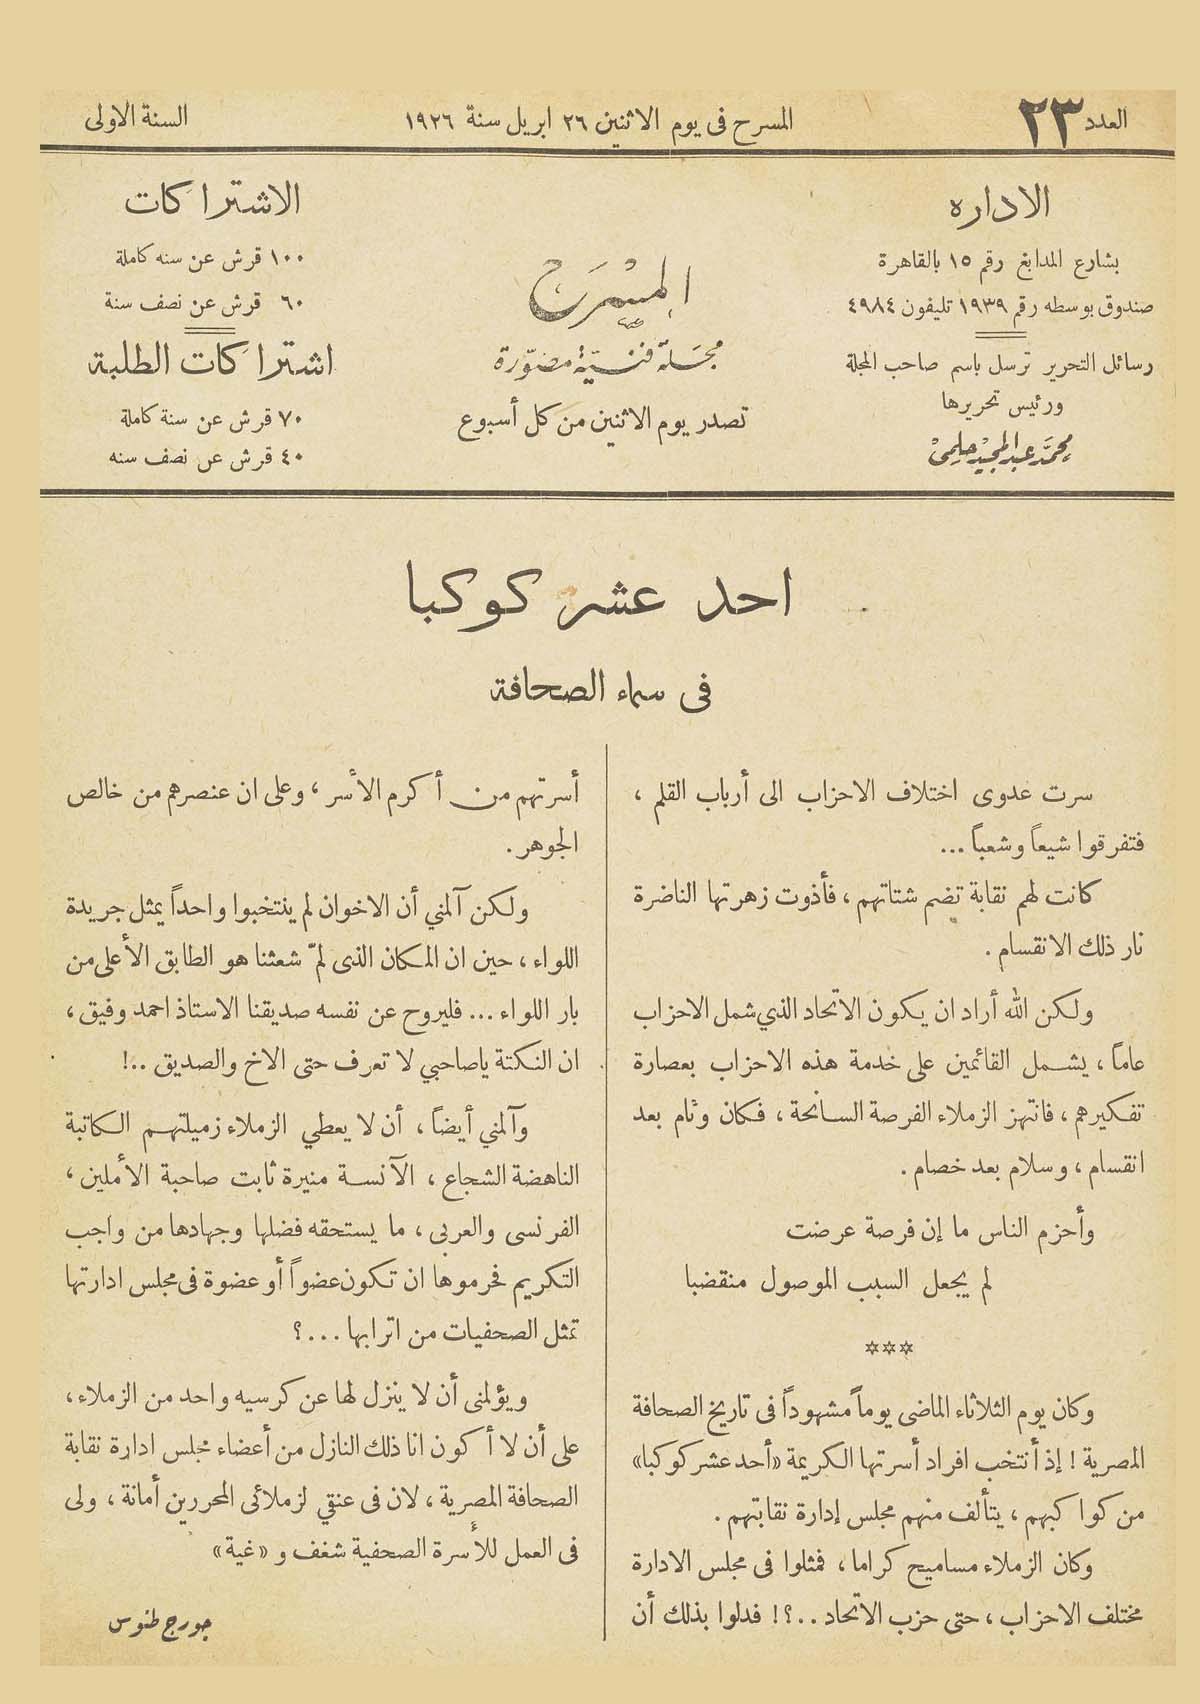 العدد ٢٣
المسرح فى يوم الاثنين ٢٦ ابريل سنة ١٩٢٦
السنة الاولى
الاداره
بشارع المدابغ رقم ١٥ بالقاهرة
صندوق بوسطه رقم ١٩٣٩ تليفون ٤٩٨٤
رسائل التحرير ترسل باسم صاحب المجلة
ورئيس تحريرها
محمد عبد المجيد حلمى
المسرح
مجلة فنية مصورة
تصدر يوم الاثنين من كل أسبوع
الاشتراكات
١٠٠ قرش عن سنه كاملة
٦٠ قرش عن نصف سنة
اشتراكات الطلبة
٧٠ قرش عن سنة كاملة
٤٠ قرش عن نصف سنه
احد عشر كوكبا
فى سماء الصحافة
سرت عدوى اختلاف الاحزاب الى أرباب القلم ،
فتفرقوا شيعاً وشعباً ...
كانت لهم نقابة تضم شتاتهم ، فأذوت زهرتها الناضرة
نار ذلك الانقسام .
ولكن الله أراد ان يكون الاتحاد الذي شمل الاحزاب
عاماً ، يشمل القائمين على خدمة هذه الاحزاب بعصارة
تفكيرهم ، فانتهز الزملاء الفرصة السانحة ، فكان وئام بعد
انقسام ، وسلام بعد خصام .
وأحزم الناس ما إن فرصة عرضت
لم يجعل السبب الموصول منقضبا
***
وكان يوم الثلاثاء الماضى يوماً مشهوداً فى تاريخ الصحافة
المصرية ! إذ أنتخب افراد أسرتها الكريمة «أحد عشر كوكبا»
من كواكبهم ، يتألف منهم مجلس إدارة نقابتهم .
وكان الزملاء مساميح كراما ، فمثلوا فى مجلس الادارة
مختلف الاحزاب ، حتى حزب الاتحاد ..؟! فدلوا بذلك أن
أسرتهم من أكرم الأسر ، وعلى ان عنصرهم من خالص
الجوهر .
ولكن آلمني أن الاخوان لم ينتخبوا واحداً يمثل جريدة
اللواء ، حين ان المكان الذى لمّ شعثنا هو الطابق الأعلى من
بار اللواء ... فليروح عن نفسه صديقنا الاستاذ احمد وفيق ،
ان النكتة ياصاحبي لا تعرف حتى الاخ والصديق ..!
وآلمني أيضاً ، أن لا يعطي الزملاء زميلتهم الكاتبة
الناهضة الشجاع ، الآنسة منيرة ثابت صاحبة الأملين ،
الفرنسى والعربى ، ما يستحقه فضلها وجهادها من واجب
التكريم فحرموها ان تكون عضواً أو عضوة فى مجلس ادارتها
تمثل الصحفيات من اترابها ...؟
ويؤلمنى أن لا ينزل لها عن كرسيه واحد من الزملاء ،
على أن لا أكون انا ذلك النازل من أعضاء مجلس ادارة نقابة
الصحافة المصرية ، لان فى عنقي لزملائى المحررين أمانة ، ولى
فى العمل للأسرة الصحفية شغف و «غية»
جورج طنوس